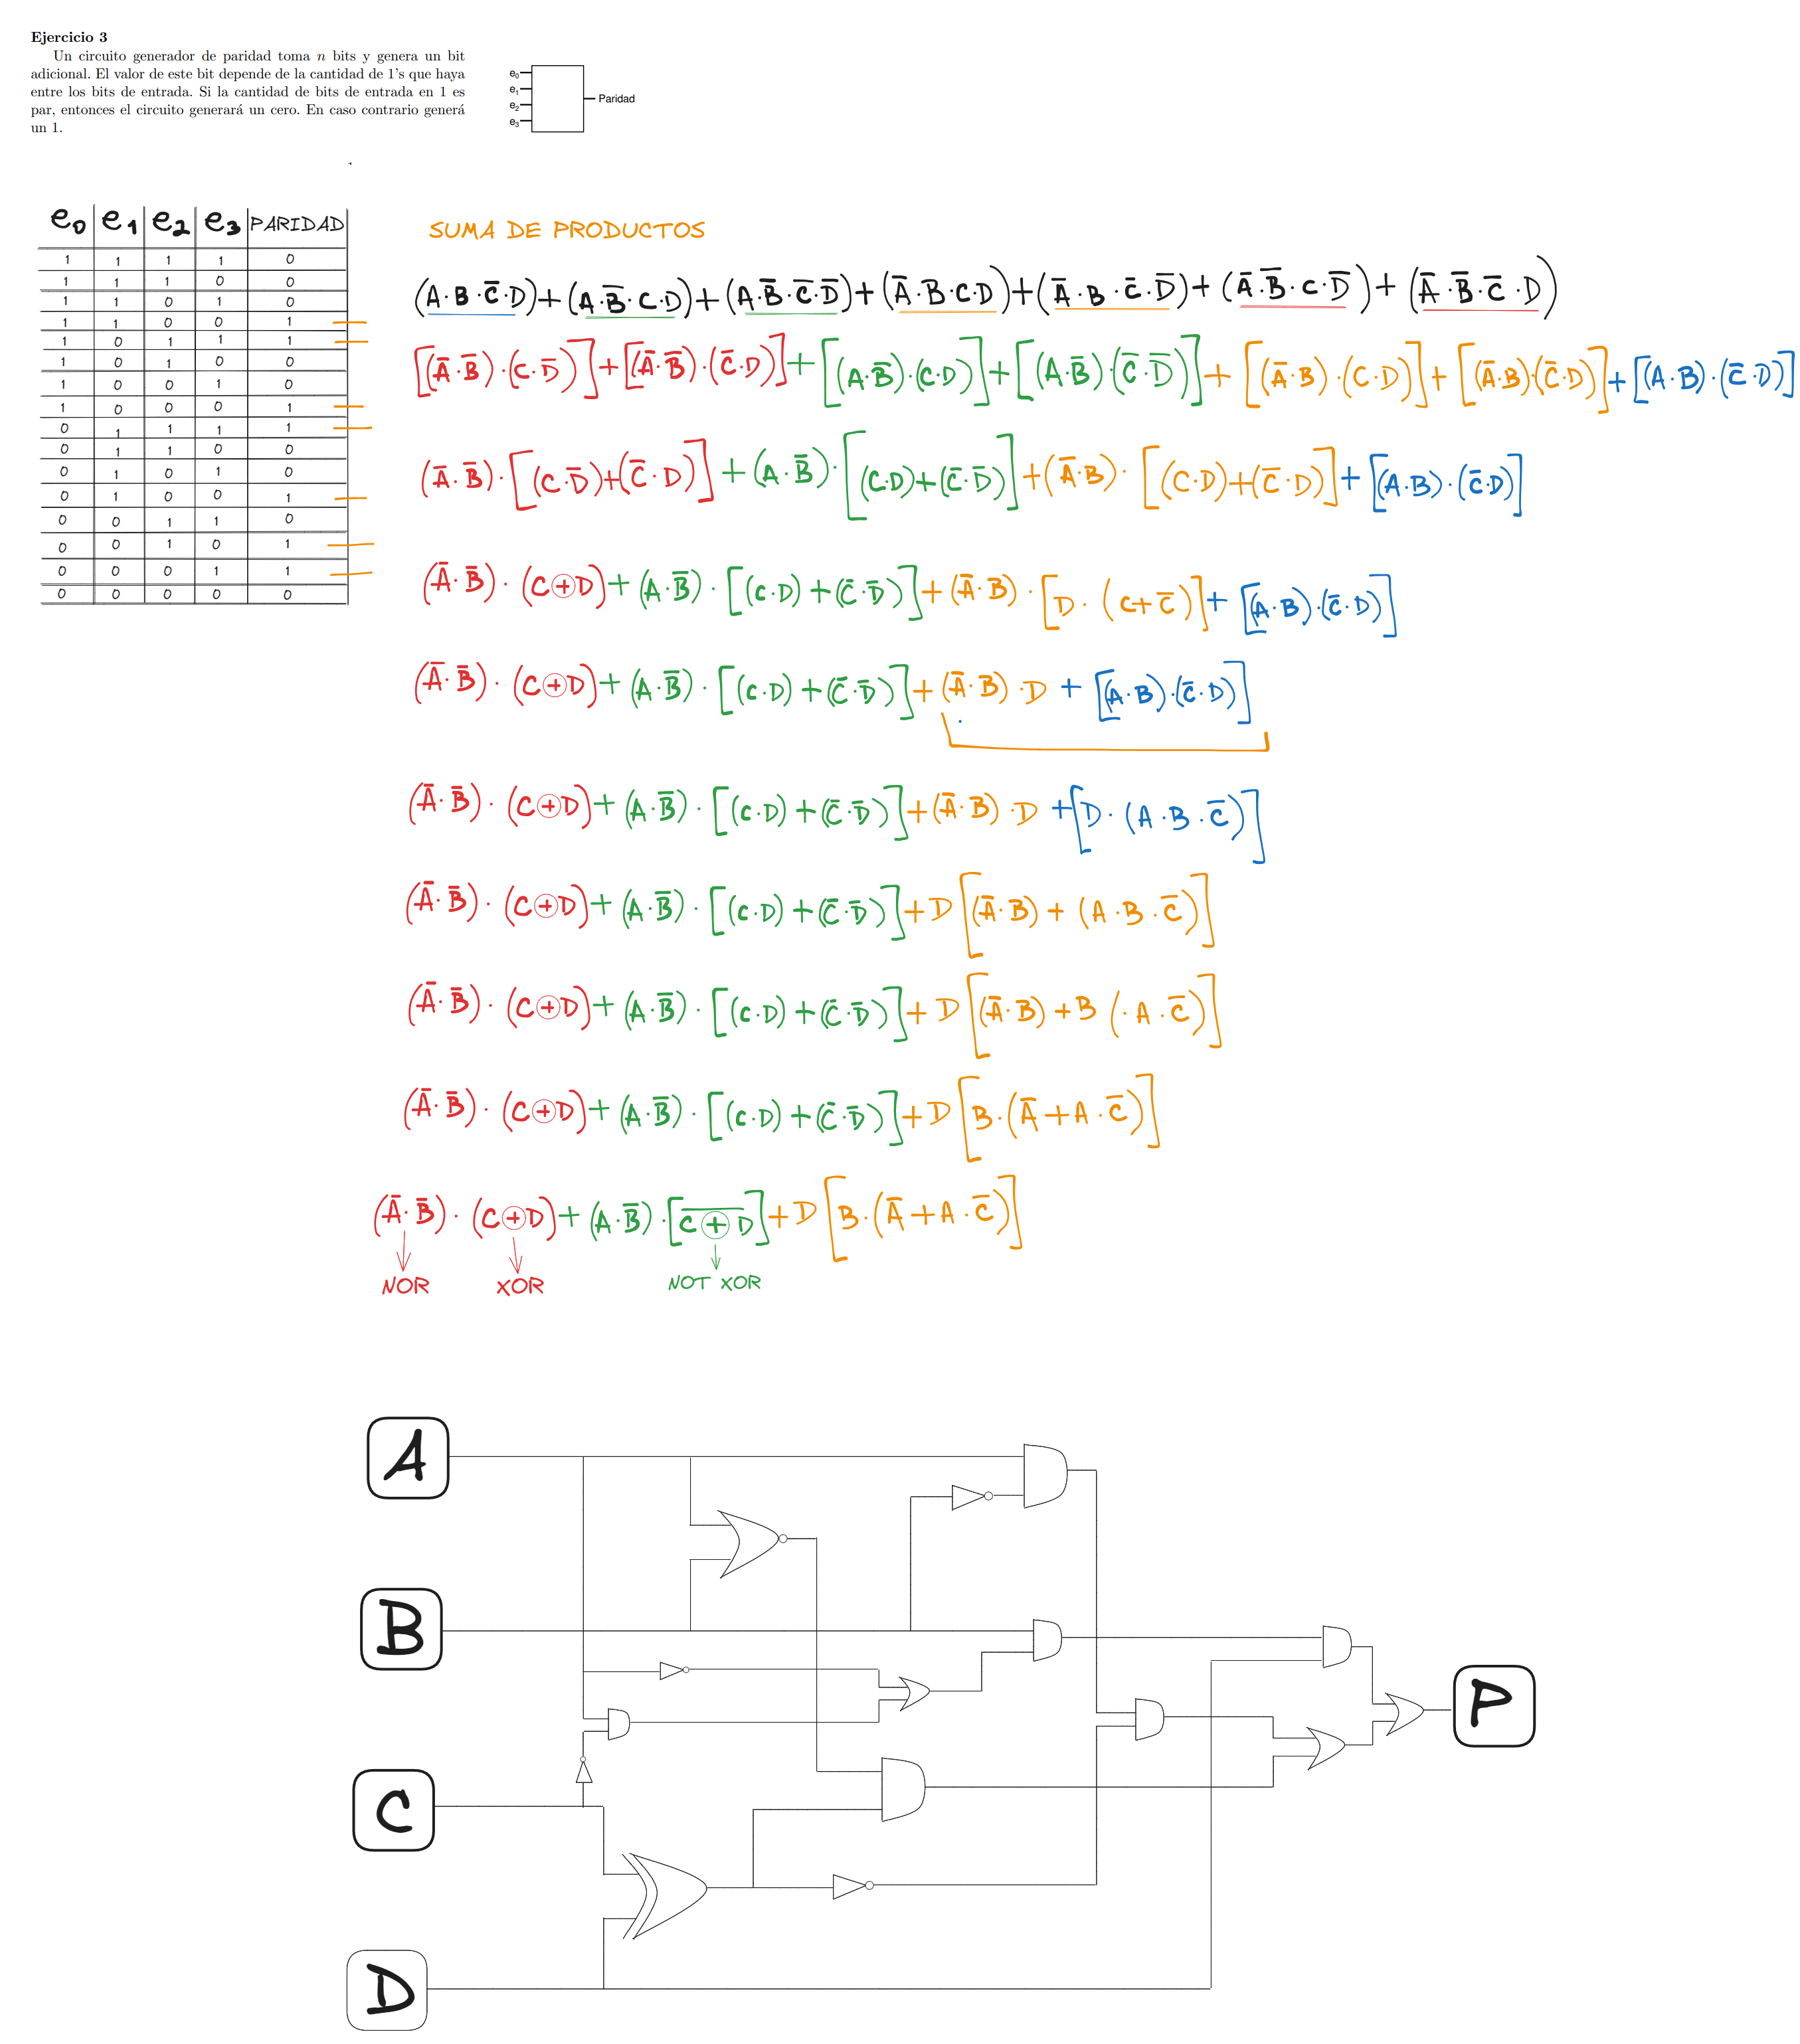 Ejercicio 3
Un circuito generador de paridad toma n bits y genera un bit
adicional. El valor de este bit depende de la cantidad de 1's que haya
entre los bits de entrada. Si la cantidad de bits de entrada en 1 es
par, entonces el circuito generará un cero. En caso contrario generá
un 1.
e₀
e₁
e₂
e₃
Paridad
e₀ e₁ e₂ e₃ PARIDAD
1 1 1 1 0
1 1 1 0 0
1 1 0 1 0
1 1 0 0 1
1 0 1 1 1
1 0 1 0 0
1 0 0 1 0
1 0 0 0 1
0 1 1 1 1
0 1 1 0 0
0 1 0 1 0
0 1 0 0 1
0 0 1 1 0
0 0 1 0 1
0 0 0 1 1
0 0 0 0 0
SUMA DE PRODUCTOS
(A·B·C̅·D)+(A·B̅·C·D)+(A·B̅·C̅·D̅)+(A̅·B·C·D)+(A̅·B·C̅·D̅)+(A̅·B̅·C·D̅)+(A̅·B̅·C̅·D)
[(A̅·B̅)·(C·D̅)]+[(A̅·B̅)·(C̅·D)]+[(A·B̅)·(C·D)]+[(A·B̅)·(C̅·D̅)]+[(A̅·B)·(C·D)]+[(A̅·B)·(C̅·D)]+[(A·B)·(C̅·D)]
(A̅·B̅)·[(C·D̅)+(C̅·D)]+(A·B̅)·[(C·D)+(C̅·D̅)]+(A̅·B)·[(C·D)+(C̅·D)]+[(A·B)·(C̅·D)]
(A̅·B̅)·(C⊕D)+(A·B̅)·[(C·D)+(C̅·D̅)]+(A̅·B)·[D·(C+C̅)]+[(A·B)·(C̅·D)]
(A̅·B̅)·(C⊕D)+(A·B̅)·[(C·D)+(C̅·D̅)]+(A̅·B)·D+[(A·B)·(C̅·D)]
(A̅·B̅)·(C⊕D)+(A·B̅)·[(C·D)+(C̅·D̅)]+(A̅·B)·D+[D·(A·B·C̅)]
(A̅·B̅)·(C⊕D)+(A·B̅)·[(C·D)+(C̅·D̅)]+D[(A̅·B)+(A·B·C̅)]
(A̅·B̅)·(C⊕D)+(A·B̅)·[(C·D)+(C̅·D̅)]+D[(A̅·B)+B(·A·C̅)]
(A̅·B̅)·(C⊕D)+(A·B̅)·[(C·D)+(C̅·D̅)]+D[B·(A̅+A·C̅)]
(A̅·B̅)·(C⊕D)+(A·B̅)·[C̅ ⊕̅ D̅]+D[B·(A̅+A·C̅)]
NOR XOR NOT XOR
A
B
P
C
D